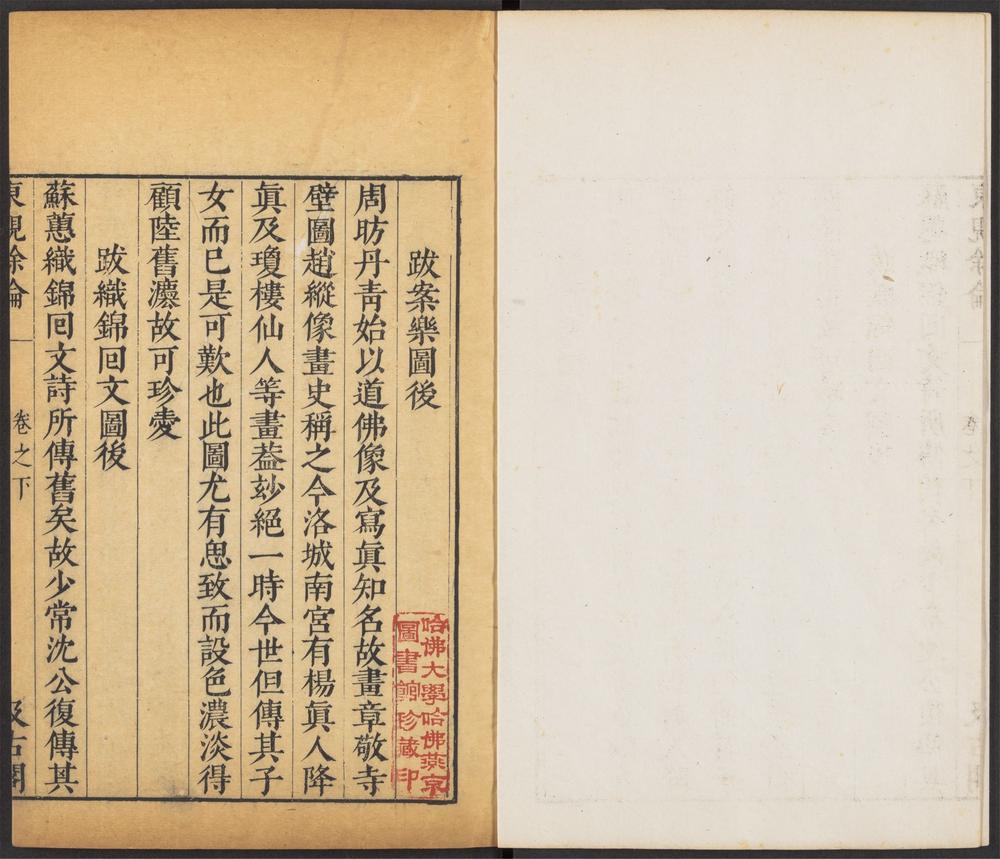 跋案樂圖後
周昉丹青始以道佛像及寫眞知名故畫章敬寺
壁圖趙縱像畫史稱之今洛城南宮有楊眞人降
眞及瓊樓仙人等畫葢玅絕一時今世但傳其子
女而已是可歎也此圖尤有思致而設色濃淡得
顧陸舊灋故可珍愛
跋織錦回文圖後
蘇蕙織錦回文詩所傳舊矣故少常沈公復傳其
東觀餘論
卷之下
汲古閣
哈佛大學哈佛燕京
圖書館珍藏印